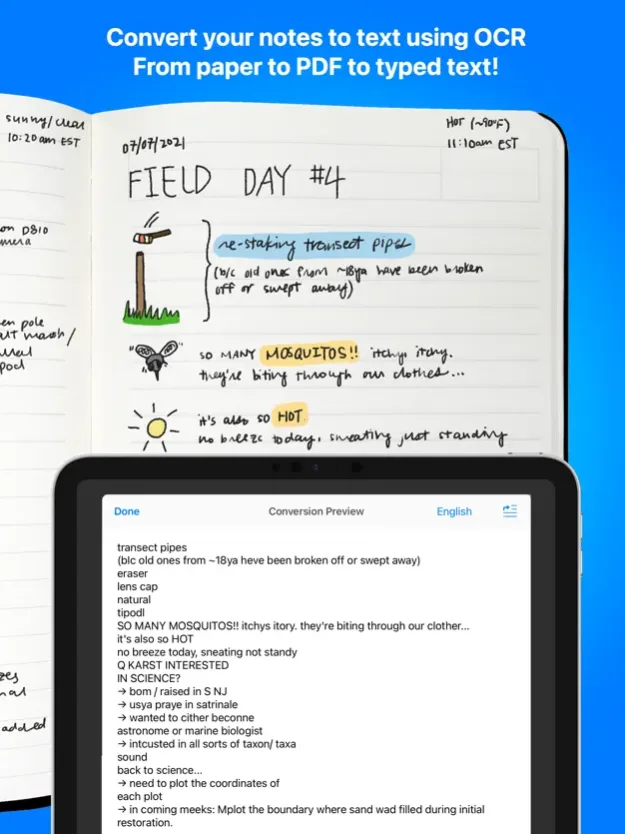 Convert your notes to text using OCR
From paper to PDF to typed text!
sunny/clear
10:20am EST
on D810
mera
en pole
alt marsh/
pod
zes
nal
added
07/07/2021
HOT (~90°F)
11:10am EST
FIELD DAY #4
re-staking transect pipes
(b/c old ones from ~18ya have been broken
off or swept away)
SO MANY MOSQUITOS!! itchy itchy.
they're biting through our clothes...
it's also so HOT.
no breeze today, sweating just standing
Done
Conversion Preview
English
transect pipes
(blc old ones from ~18ya heve been broken off or swept away)
eraser
lens cap
natural
tipodl
SO MANY MOSQUITOS!! itchys itory. they're biting through our clother...
it's also so HOT
no breeze today, sneating not standy
Q KARST INTERESTED
IN SCIENCE?
→ bom / raised in S NJ
→ usya praye in satrinale
→ wanted to cither beconne
astronome or marine biologist
→ intcusted in all sorts of taxon/ taxa
sound
back to science...
→ need to plot the coordinates of
each plot
→ in coming meeks: Mplot the boundary where sand wad filled during initial
restoration.